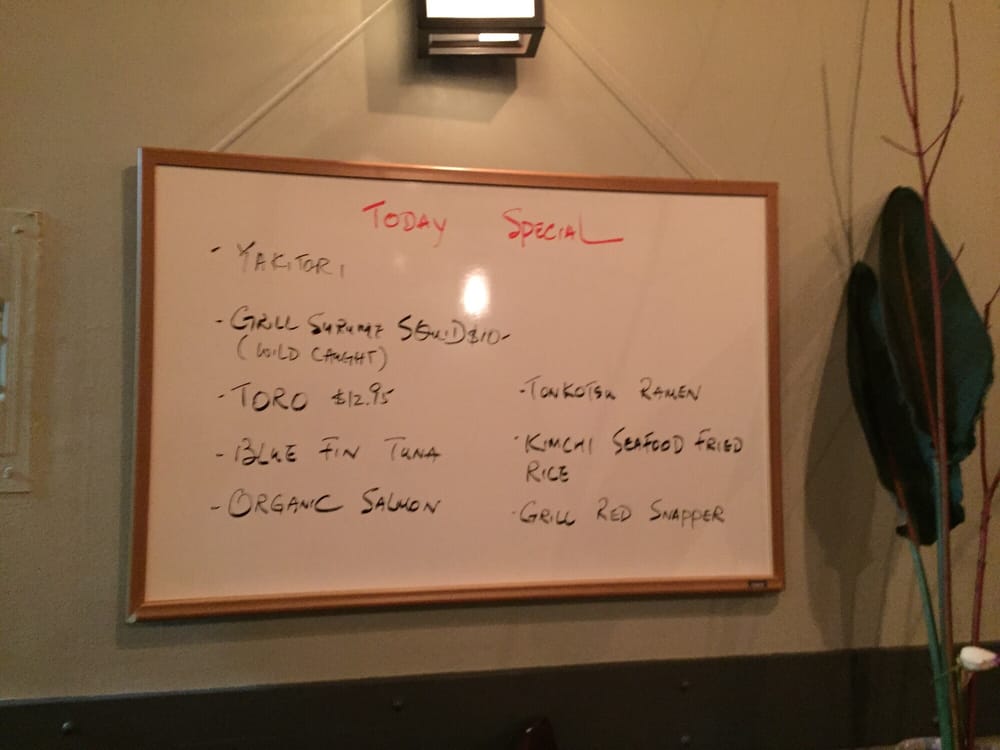 TODAY SPECIAL
- YAKITORI
- GRILL SURUME SQUID $10-
(WILD CAUGHT)
- TORO $12.95
- BLUE FIN TUNA
- ORGANIC SALMON
- TONKOTSU RAMEN
- KIMCHI SEAFOOD FRIED
RICE
- GRILL RED SNAPPER